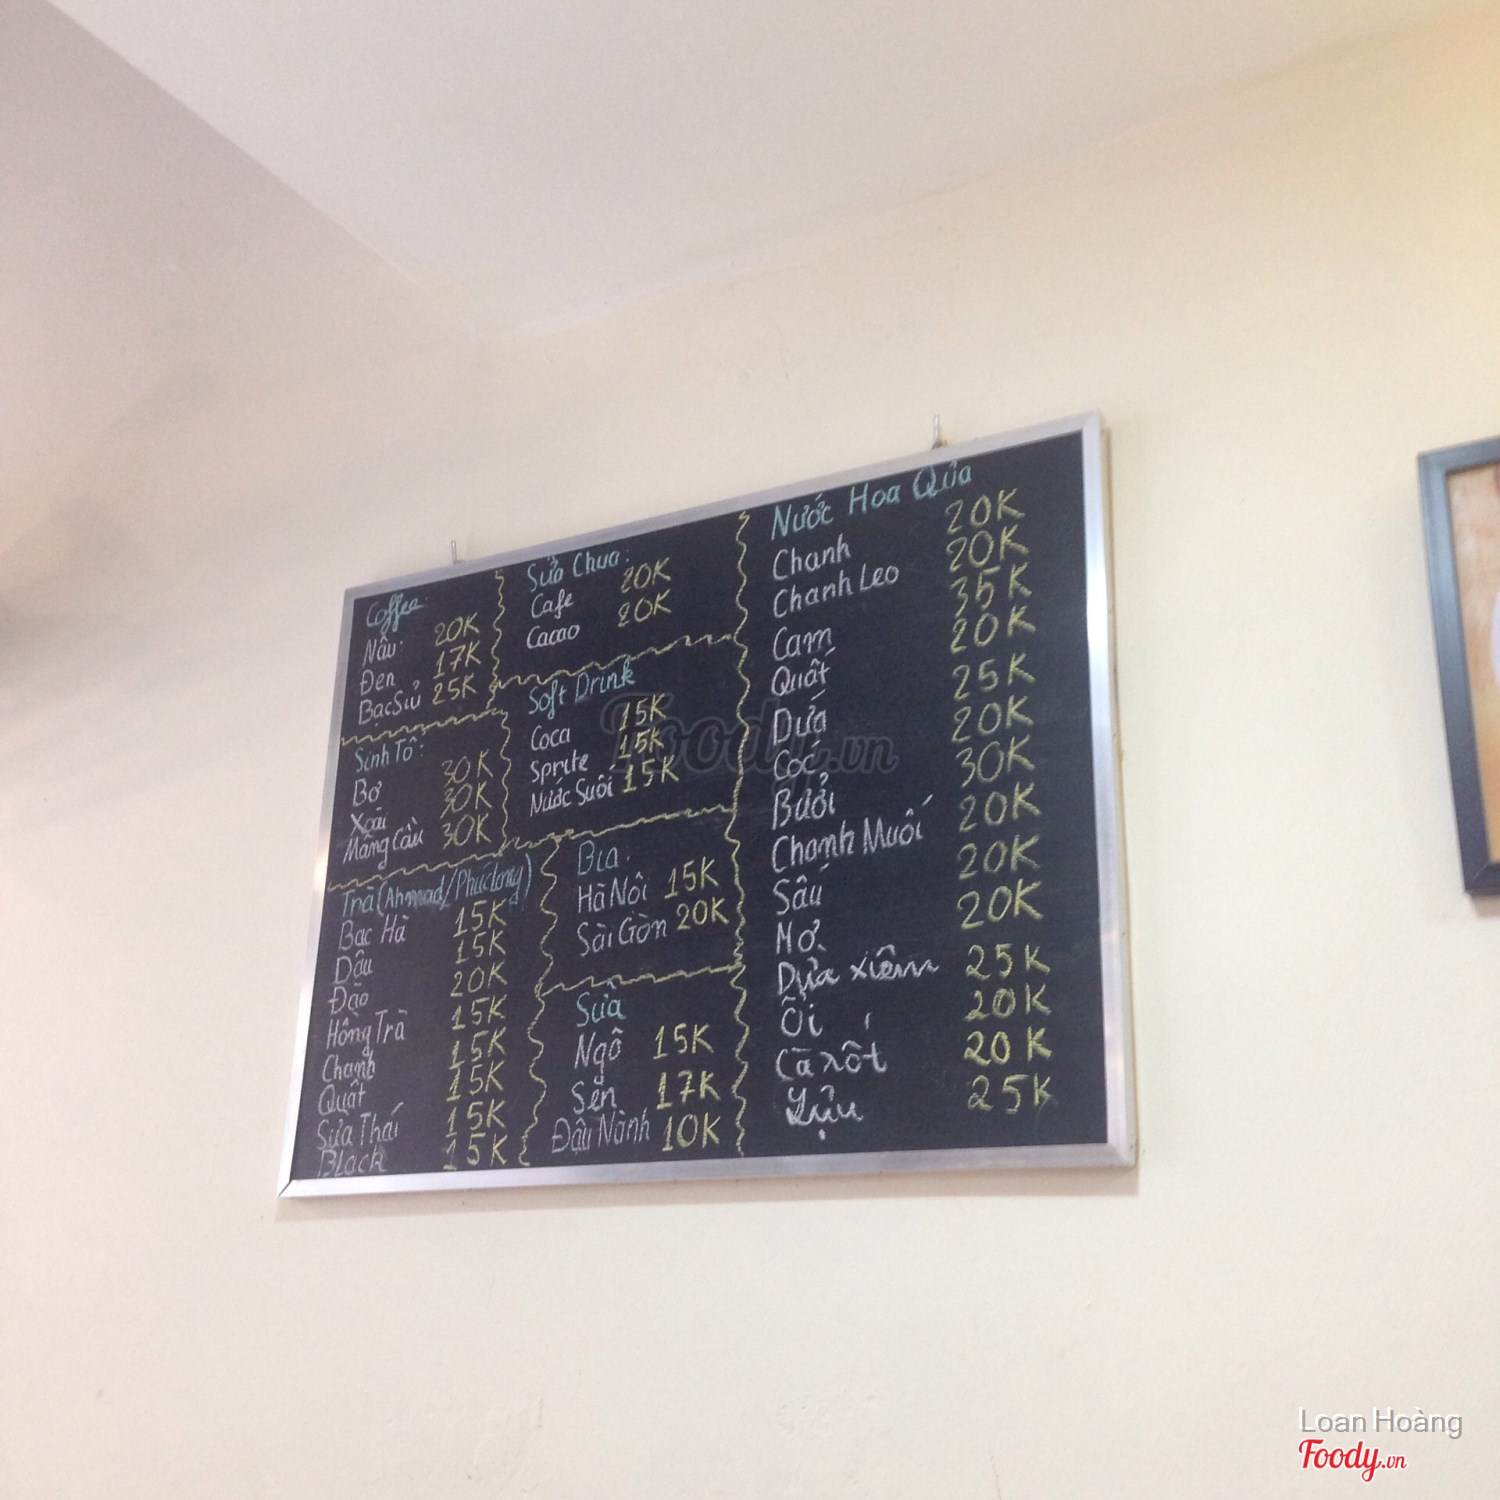 Coffee:
Nâu: 20K
Đen 17K
Bạc Sỉu 25K
Sinh Tố:
Bơ 30K
Xoài 30K
Mãng Cầu 30K
Trà (Ahmad/Phúclong)
Bạc Hà 15K
Dâu 15K
Đào 20K
Hồng Trà 15K
Chanh 15K
Quất 15K
Sữa Thái 15K
Black 15K
Sữa Chua:
Cafe 20K
Cacao 20K
Soft Drink
Coca 15K
Sprite 15K
Nước Suối 15K
Bia.
Hà Nội 15K
Sài Gòn 20K
Sữa
Ngô 15K
Sen 17K
Đậu Nành 10K
Nước Hoa Qủa
Chanh 20K
Chanh Leo 20K
Cam 35K
Quất 20K
Dứa 25K
Cóc 20K
Bưởi 30K
Chanh Muối 20K
Sấu 20K
Mơ. 20K
Dừa xiêm 25K
Ổi 20K
Cà rốt 20K
Lựu 25K
Foody.vn
Loan Hoàng
Foody.vn